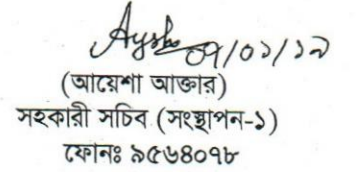 ০৭/০১/১৯
(আয়েশা আক্তার)
সহকারী সচিব (সংস্থাপন-১)
ফোনঃ ৯৫৬৪০৭৮